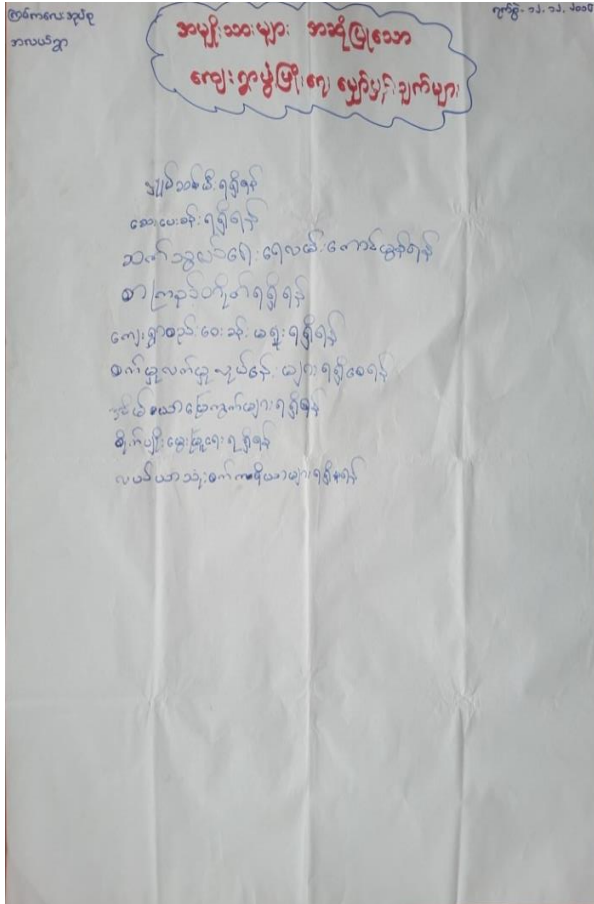 ကြမ်ကလေးအုပ်စု
အလယ်ရွာ
ရက်စွဲ - ၁၂.၁၂.၂၀၁၆
အမျိုးသားများ အဆိုပြုသော
ကျေးရွာဖွံ့ဖြိုးရေး မျှော်မှန်းချက်များ
မီး ရရှိရန်
ဆေးပေးခန်း ရရှိရန်
ဆက်သွယ်ရေး ကောင်းမွန်ရန်
စာကြည့်တိုက် ရရှိရန်
ကျေးရွာ ရရှိရန်
စက်မှုလက်မှု လုပ်ငန်းများ ရရှိစေရန်
မြေကွက်များ ရရှိရန်
စိုက်ပျိုးမွေးမြူရေး ရရှိရန်
လယ်ယာသုံး စက်ကရိယာများ ရရှိရန်